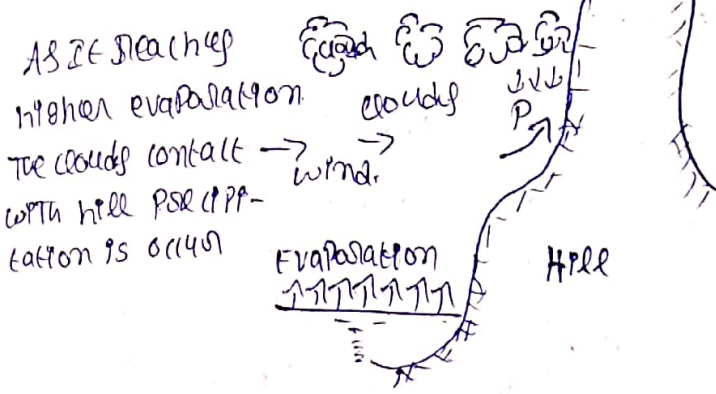 AS It reaches
higher evaporation
The clouds contact
with hill precippi-
tation is occur
cloud
clouds
P
wind.
Evaporation
Hill